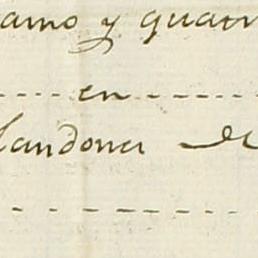 amo y quatr
en
landona de